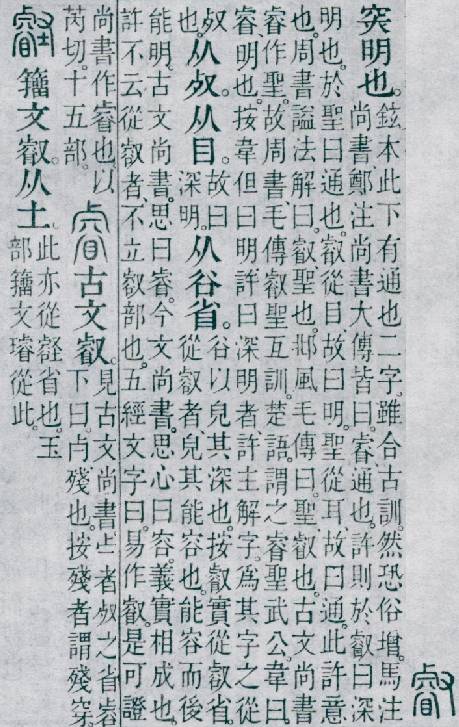 叡
突明也。
鉉本此下有通也二字。雖合古訓。然恐俗增。馬注
尚書鄭注尚書大傳皆曰。睿通也。許則於叡曰深
明也。於聖曰通也。叡從目。故曰明。聖從耳。故曰通。此許意
也。周書諡法解曰。叡聖也。邶風毛傳曰。聖叡也。古文尚書
睿作聖。故周書毛傳叡聖互訓。楚語。謂之睿聖武公。韋曰
睿。明也。按韋但曰明。許曰深明者。許主解字。爲其字之從
𣦼
也。
从𣦼从目。
故曰
深明。
从谷省。
谷以皃其深也。按叡實從叡省。
從叡者。皃其能容也。能容而後
能明。古文尚書。思曰睿。今文尚書。思心曰容。義實相成也。
許不云從叡者。不立叡部也。五經文字曰。易作叡。是可證
尚書作睿也。以
芮切。十五部。
睿
古文叡。
見古文尚書。者𣦼之省。
下曰。殘也。按殘者謂殘穿。
壡
籒文叡。从土。
此亦從省也。玉
部籒文璿從此。